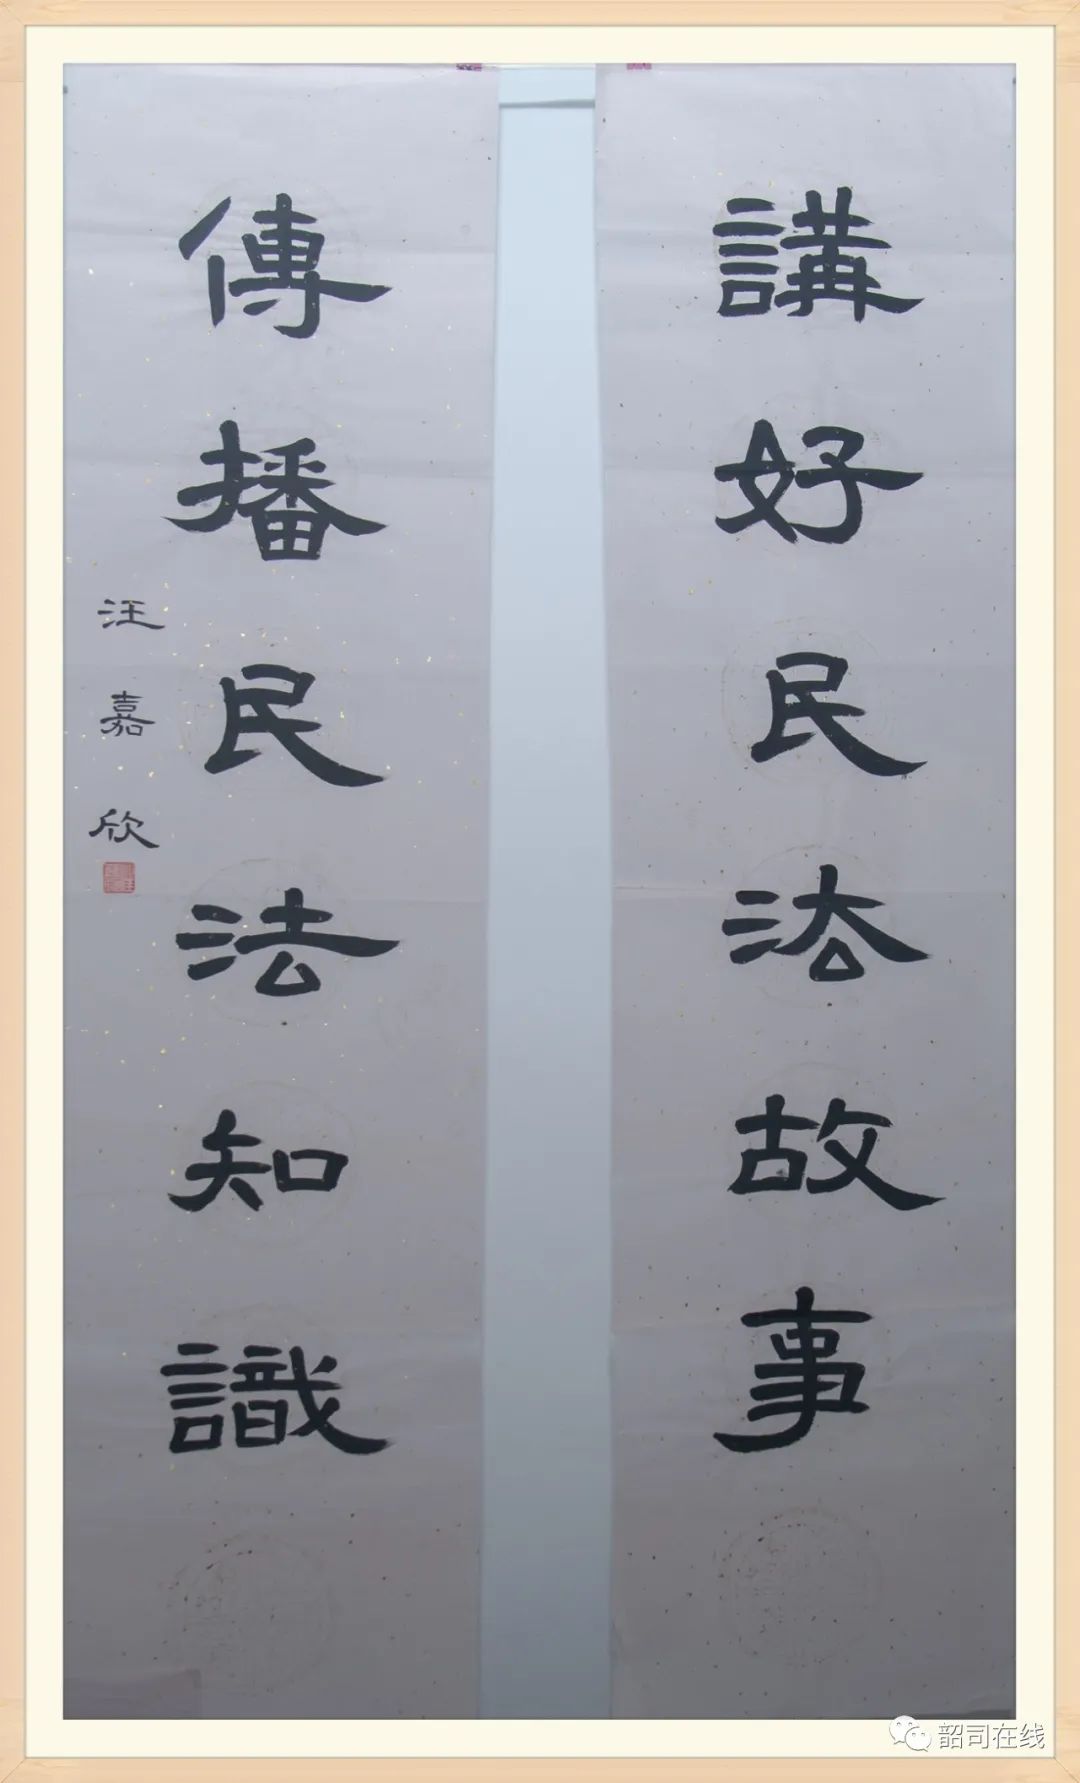 講好民法故事
傳播民法知識
汪嘉欣
韶司在线